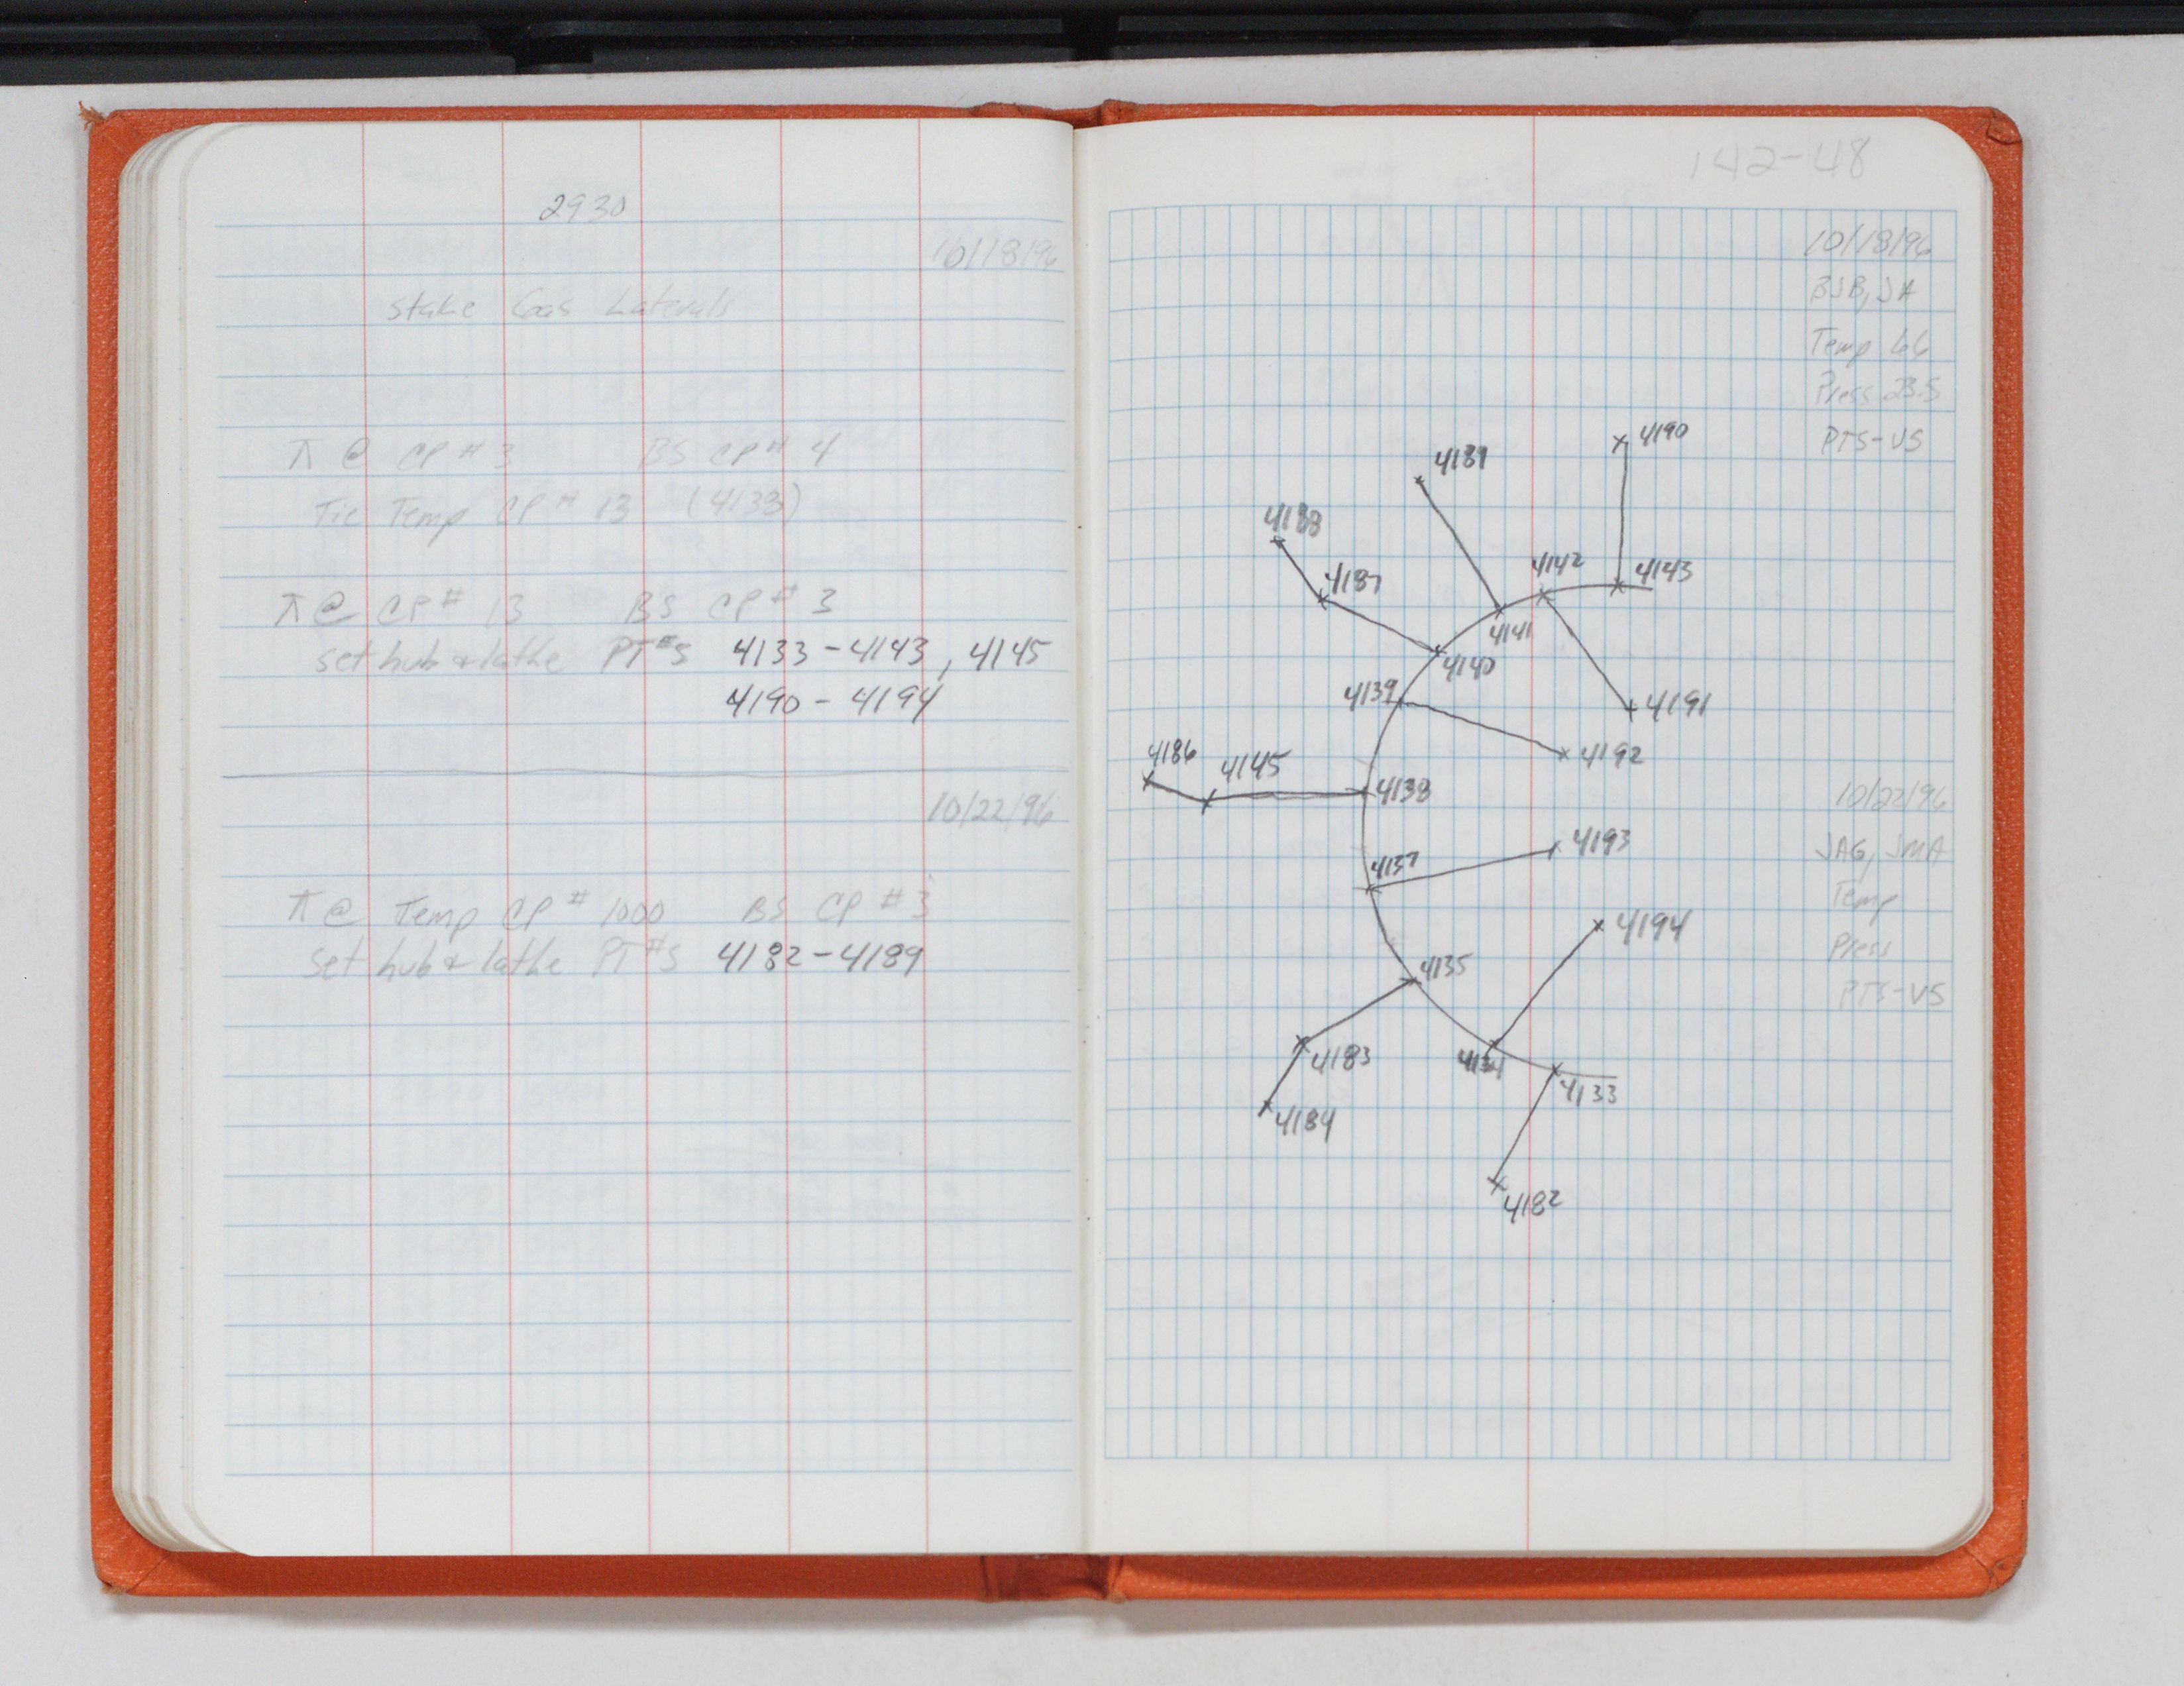 2930
10/18/96
Stake Gas Laterals
⊼ @ CP # 3 BS CP # 4
Tie Temp CP # 13 (4138)
⊼ @ CP # 13 BS CP # 3
set hub & lathe PT#S 4133-4143, 4145
4190 - 4194
10/22/96
⊼ @ Temp CP # 1000 BS CP # 3
set hub & lathe PT#S 4182-4189
142-48
10/18/96
BJB, JA
Temp 66
Press 23.5
PTS-VS
4190
4189
4188
4187
4142
4143
4141
4140
4139
4191
4192
4186
4145
4138
10/22/96
JAG, JMA
Temp
Press
PTS-VS
4193
4137
4194
4135
4183
4134
4133
4184
4182